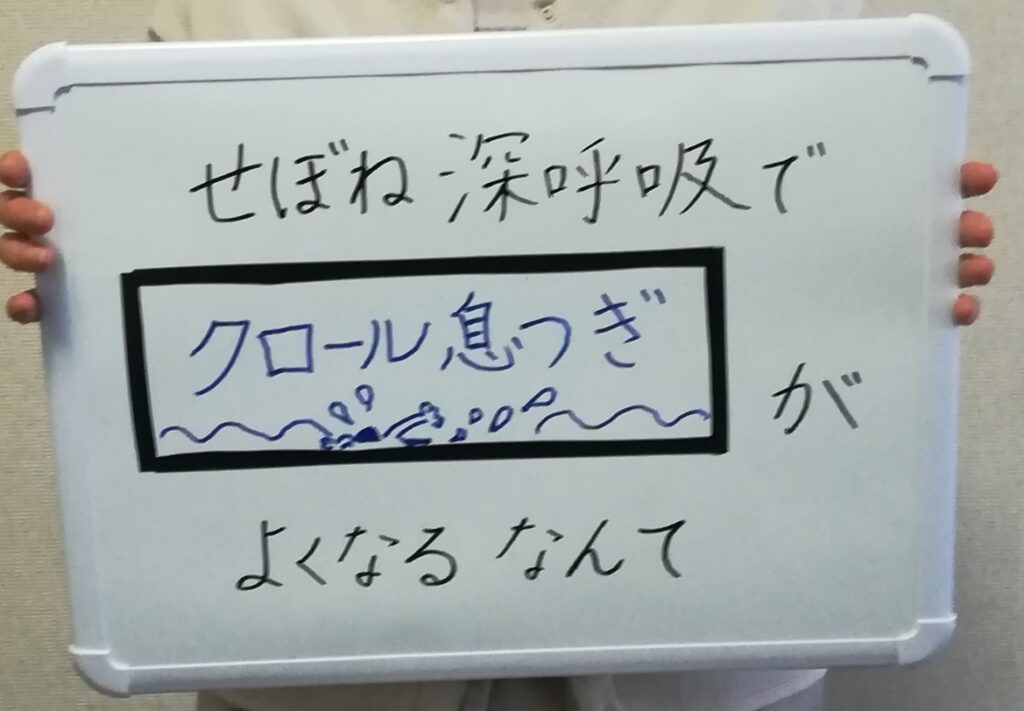 せぼね深呼吸で
クロール息つぎ
が
よくなるなんて